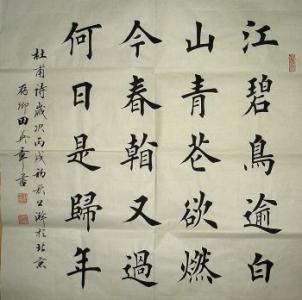 江碧鳥逾白
山青花欲燃
今春看又過
何日是歸年
杜甫詩歲次丙戌於北京
田英章書